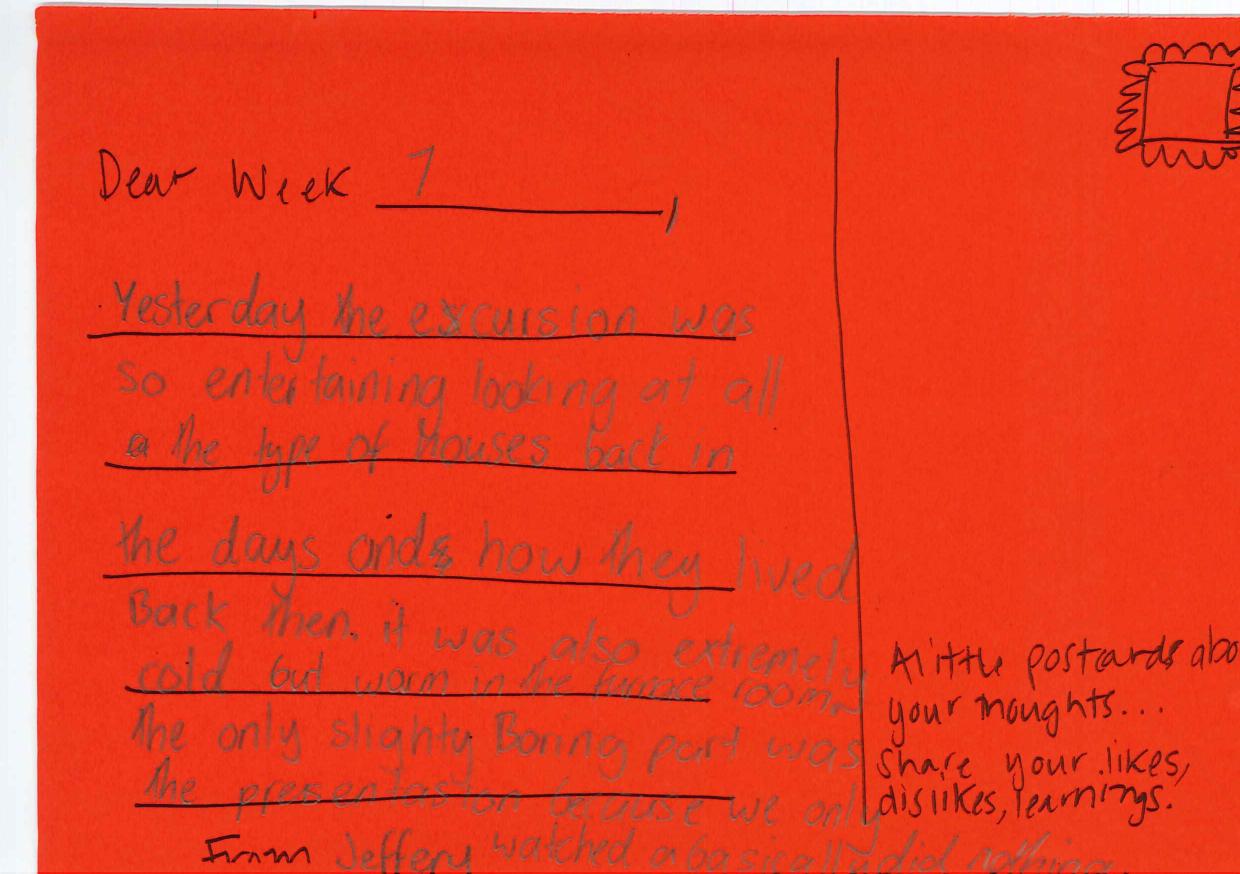 Dear Week 7,
Yesterday the excursion was
so entertaining looking at all
the type of Houses back in
the days and how they lived
Back then. it was also extremely
cold but warm in the furnace room.
the only slighty Boring part was
the presentastion because we only
From Jeffery watched a basically did nothing.
A little postcards abo
your thoughts...
share your likes,
dislikes, learnings.